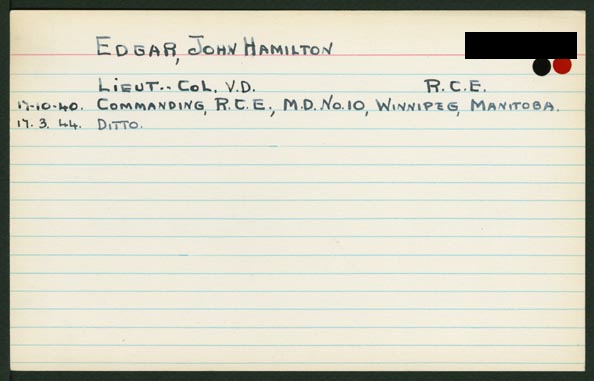 EDGAR, JOHN HAMILTON
LIEUT.-COL, V.D. R.C.E.
17-10-40. COMMANDING, R.C.E., M.D. No. 10, WINNIPEG, MANITOBA.
17. 3. 44. DITTO.